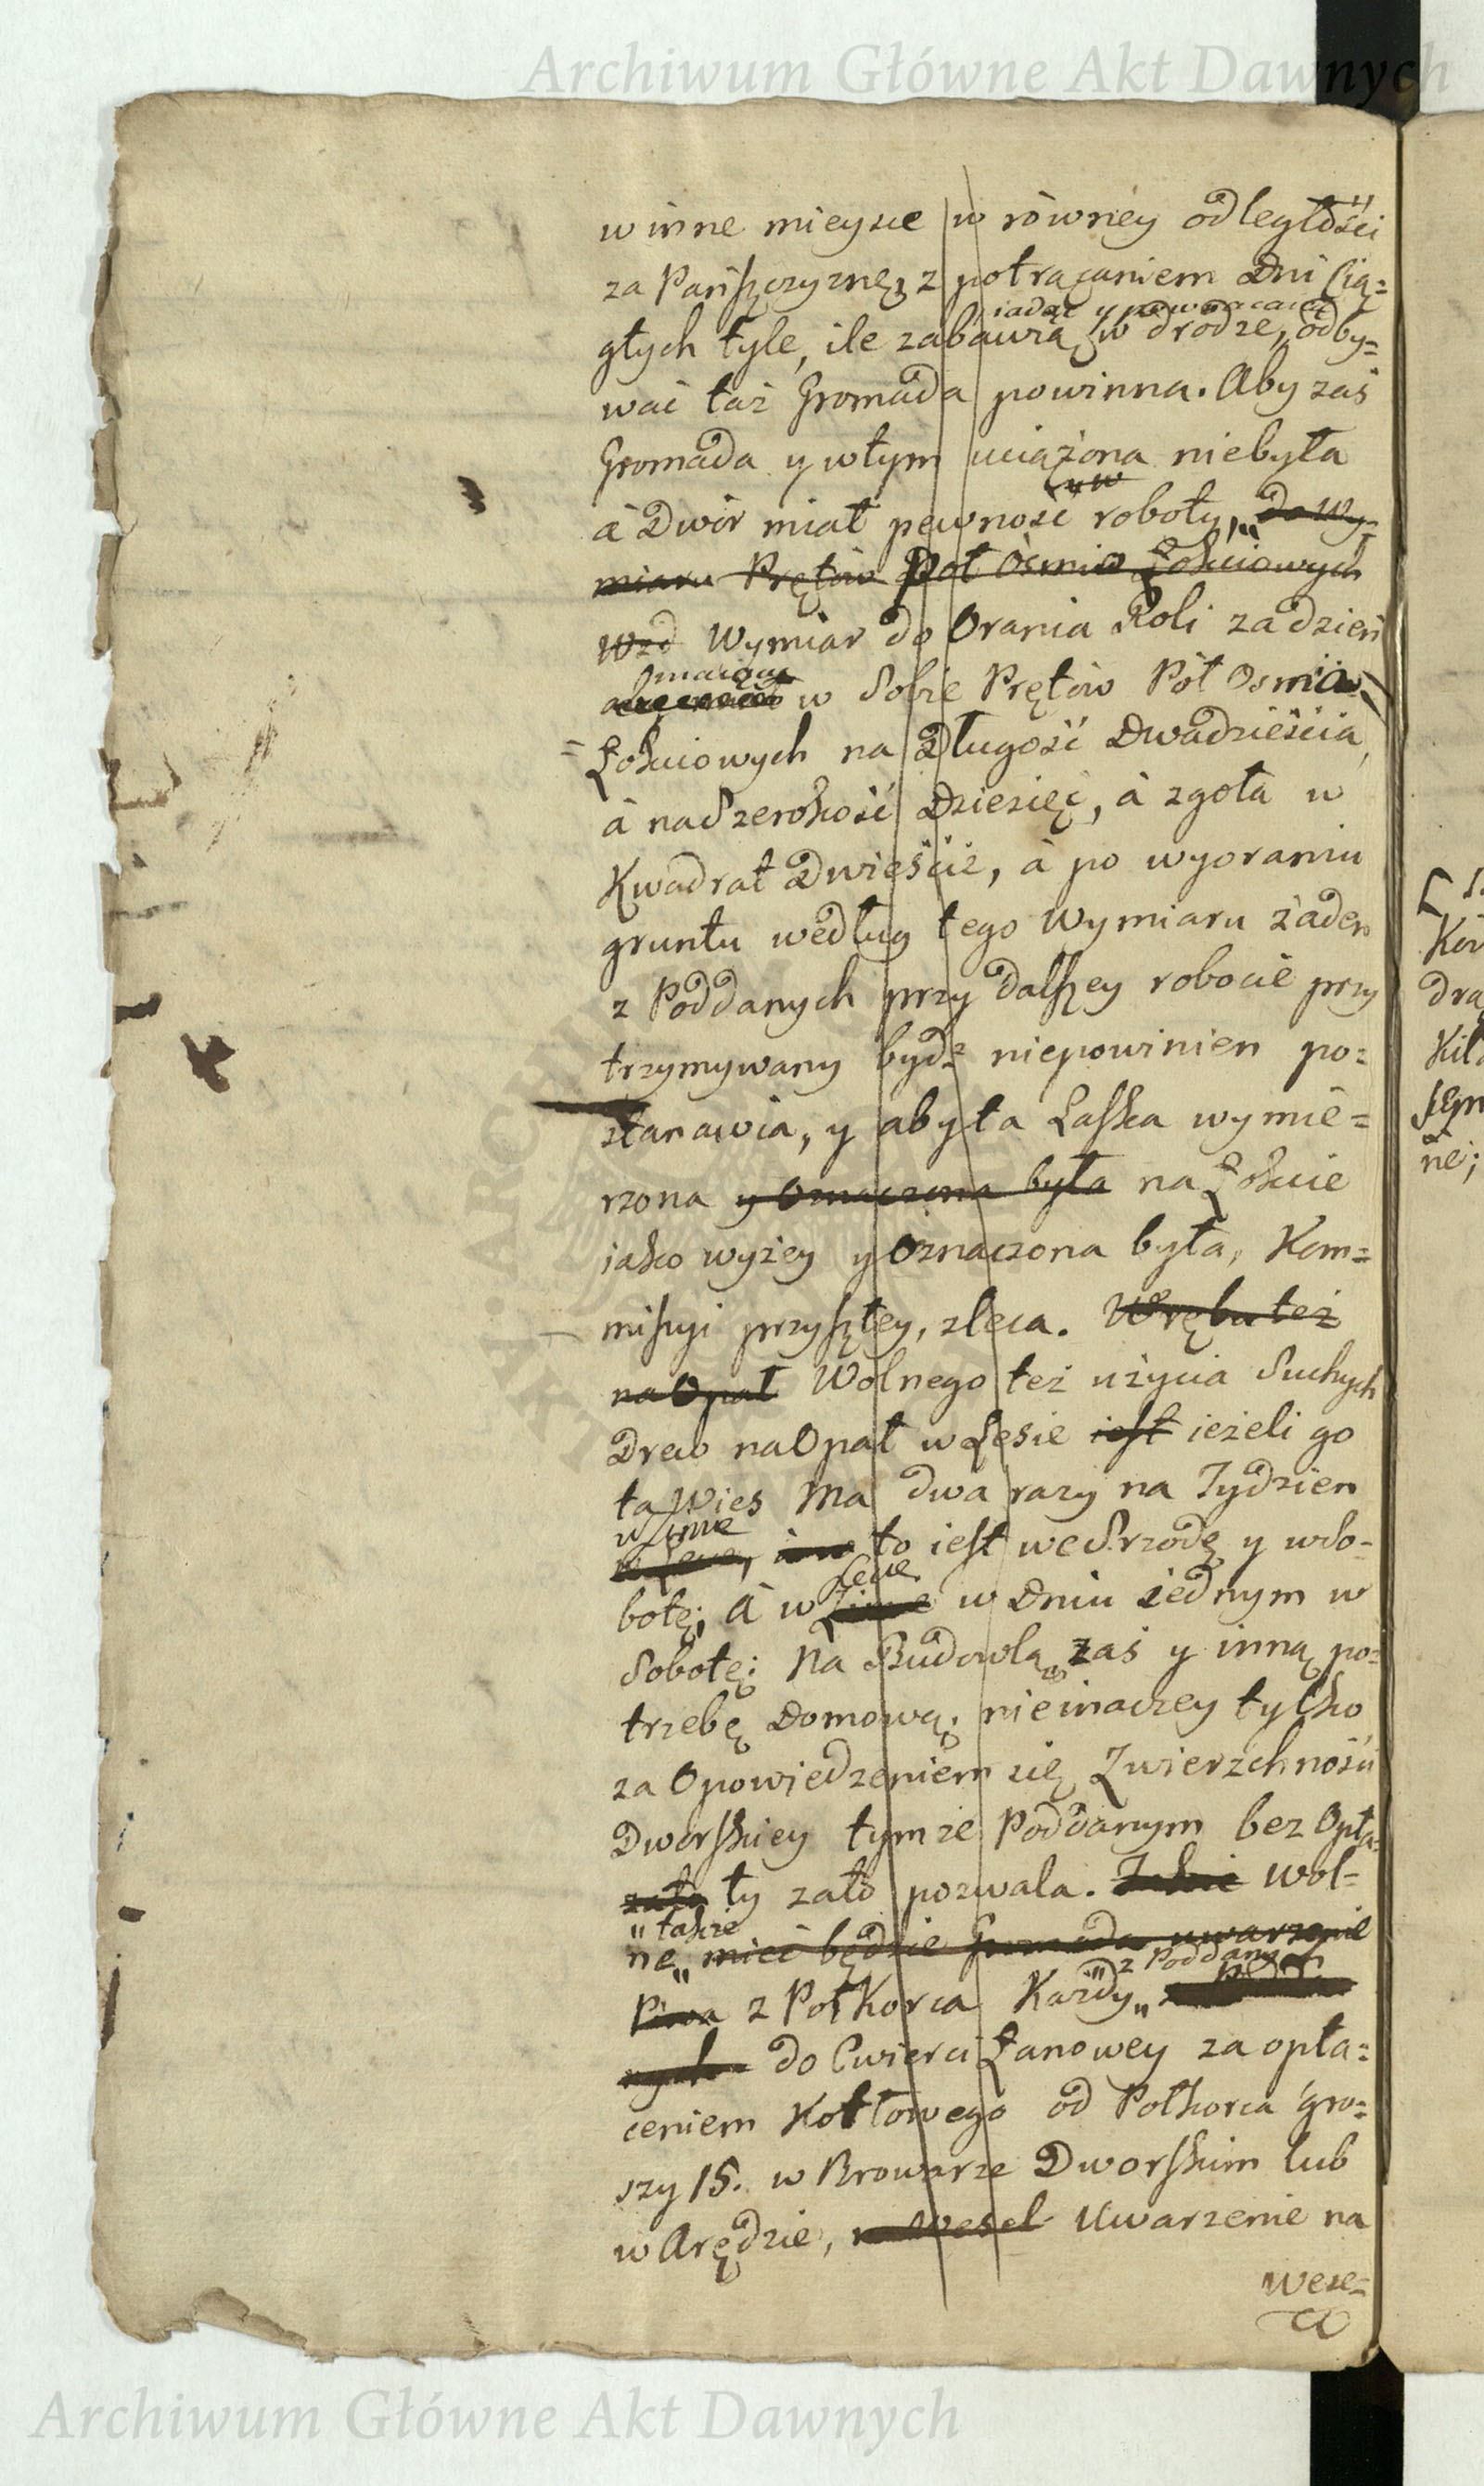 Archiwum Główne Akt Dawnych
w inne mieysce w rȯwnėy odległości
za Pańszczyznę, z potrącaniem Dni Cią=
iadąc y powracaiąc
głych tyle, ile zabawią w drodze, odby=
wać taż Gromada powinna. Aby zaś
Gromada y wtym uciążona niebyła
y w
à Dwór miał pewność roboty, do wy=
miaru Prętów Poł Osmia Łokciowych
Wzd Wymiar do Orania Roli za dzień
maiący
w Sobie Prętów Pół Osmia
= Łokciowych na Długość Dwadzieścia,
à na Szerokość Dziesięć, à zgoła w
Kwadrat Dwieście, à po wyoraniu
gruntu według tego Wymiaru żaden
z Poddanych przy dalszey robocie przy
trzymywany bydź niepowinien po=
stanawia, y aby ta Laska wymie=
rzona y Oznaczona była na Łokcie
iako wyżey y Oznaczona była, Kom=
missyi przyszłey, zleca. Wrębu też
na Opał Wolnego też użycia Suchych
Drew na Opał w Lesie iest ieżeli go
ta Wieś Ma dwa razy na Tydzien
w Zimie
w Lecie, to iest we Srzodę y w So=
Lecie
botę; à w Zimie w Dniu iednym w
Sobotę; Na Budowlą zaś y inną po=
trzebę Domową, nieinaczey tylko
za Opowiedzeniem się Zwierzchności
Dworskiey tymże Poddanym bez Opła=
zato ty zato pozwala. Wol=
" także
ne " mieć będzie Gromada uwarzenie
z Poddany
Piwa z Połkorca Każdy "
nych do Cwierci Łanowey za opła=
ceniem Kotłowego od Połkorca gro=
szy 15. w Browarze Dworskim lub
w Arędzie, Wesel Uwarzenie na
wese=
Archiwum Główne Akt Dawnych